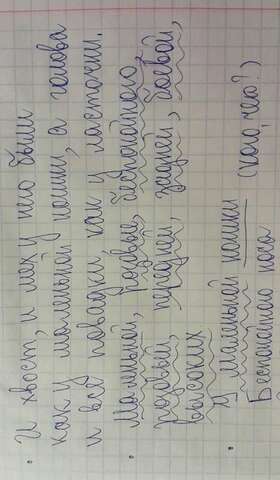 • И хвост, и мех у него были
как у маленькой кошки, а голова
и все повадки как у ласточки.
• Маминый, розовые, беспокойного,
розовый, передней, задней, боевой,
высоких
• У маленькой кошки ___ (кого, чего?)
Беспокойного нося